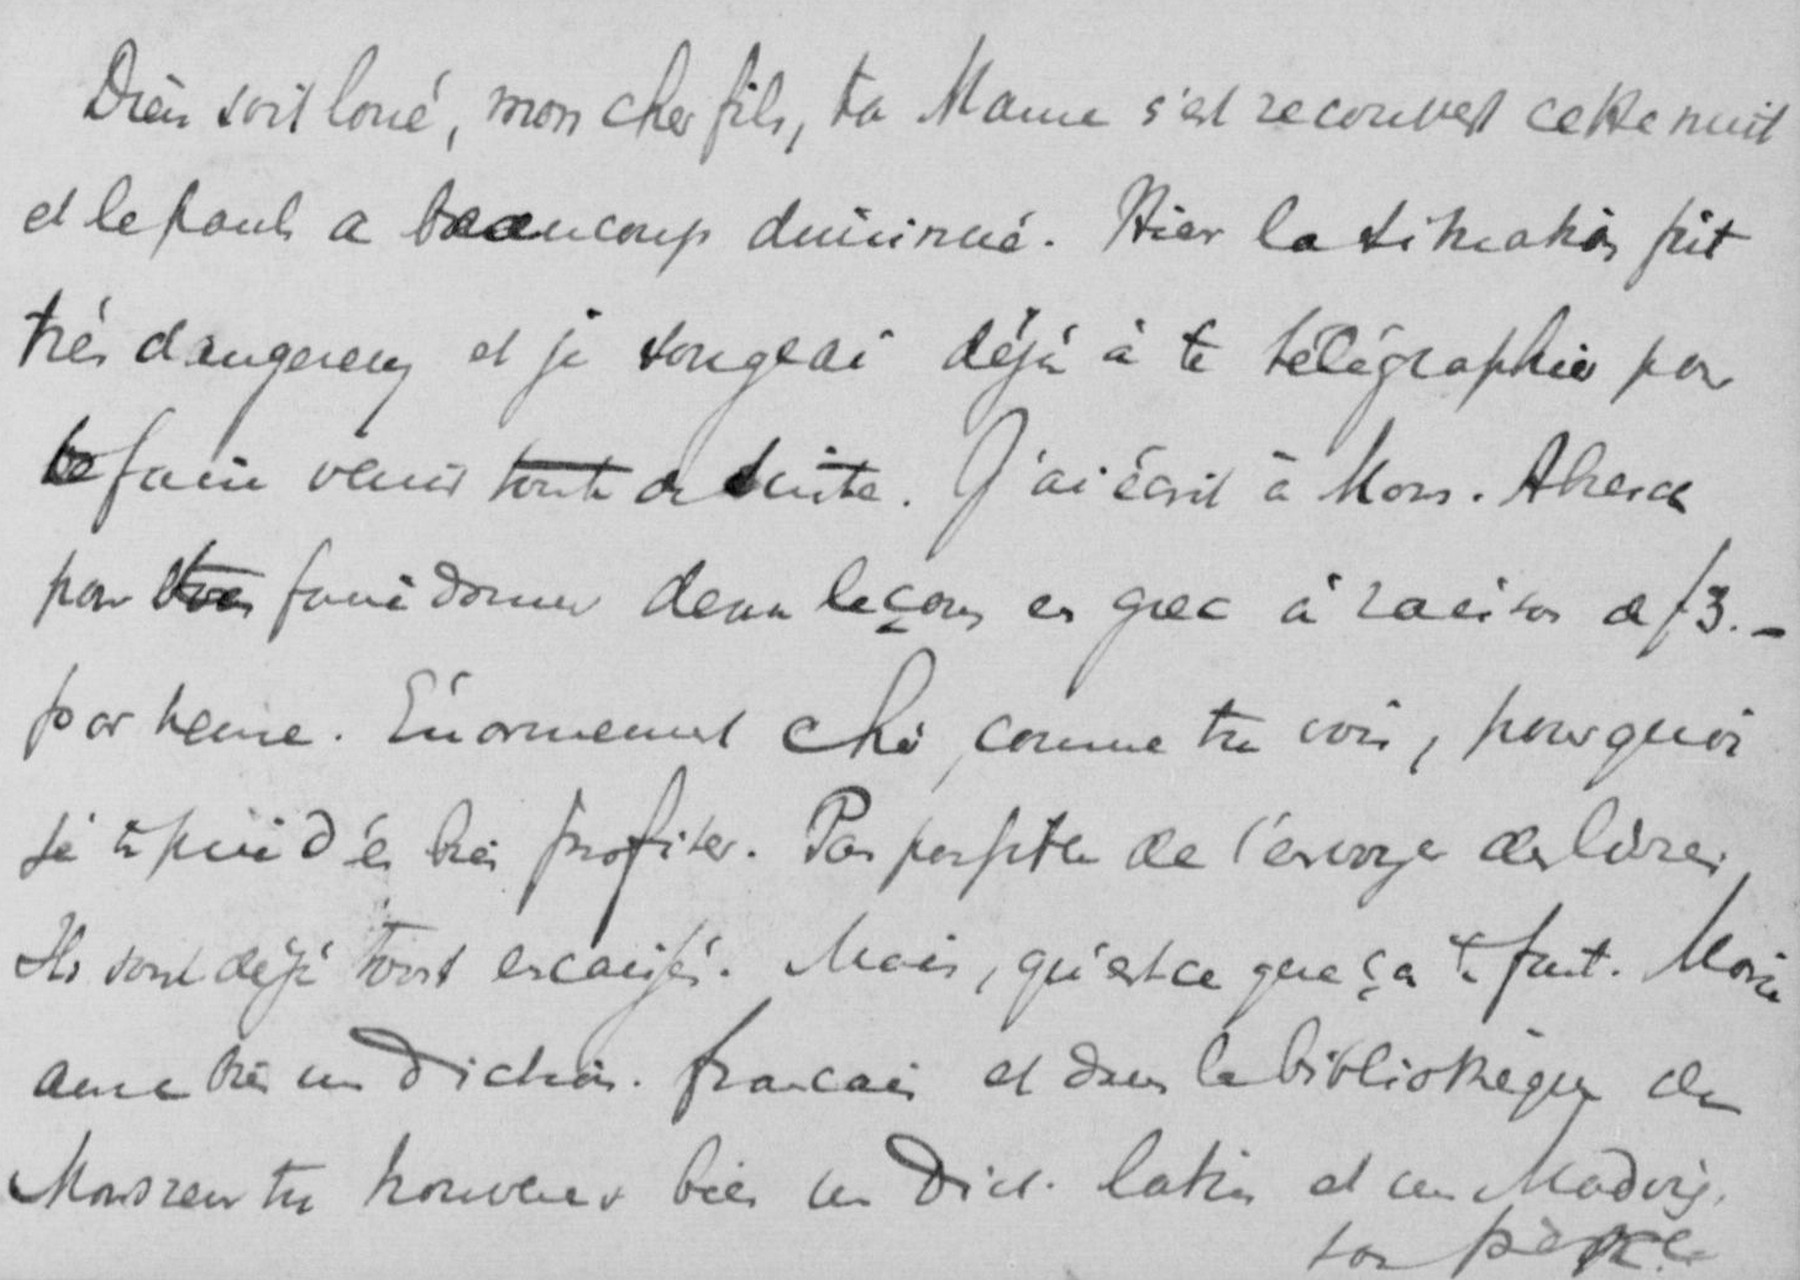 Dieu soit loué, mon cher fils, ta Mame s'est recouvert cette nuit
et le pouls a beaucoup diminué. Hier la situation fût
très dangereux et je songeai déjà à te télégraphier pour
te faire venir toute de suite. J'ai écrit à Mons.
pour faire donner deux leçons en grec à raison de f 3.-
par heure. Énormement cher, comme tu vois, pourquoi
je te prie d'en bien profiter. Pas de l'envoye des livres,
Ils sont déjà tous encaissés. Mais, qu'est ce que ça te fait. Marie
aura bien un Diction. francais et dans la bibliothèque de
Monsieur tu trouveras bien un Dict. latin et un Madvig.
ton père